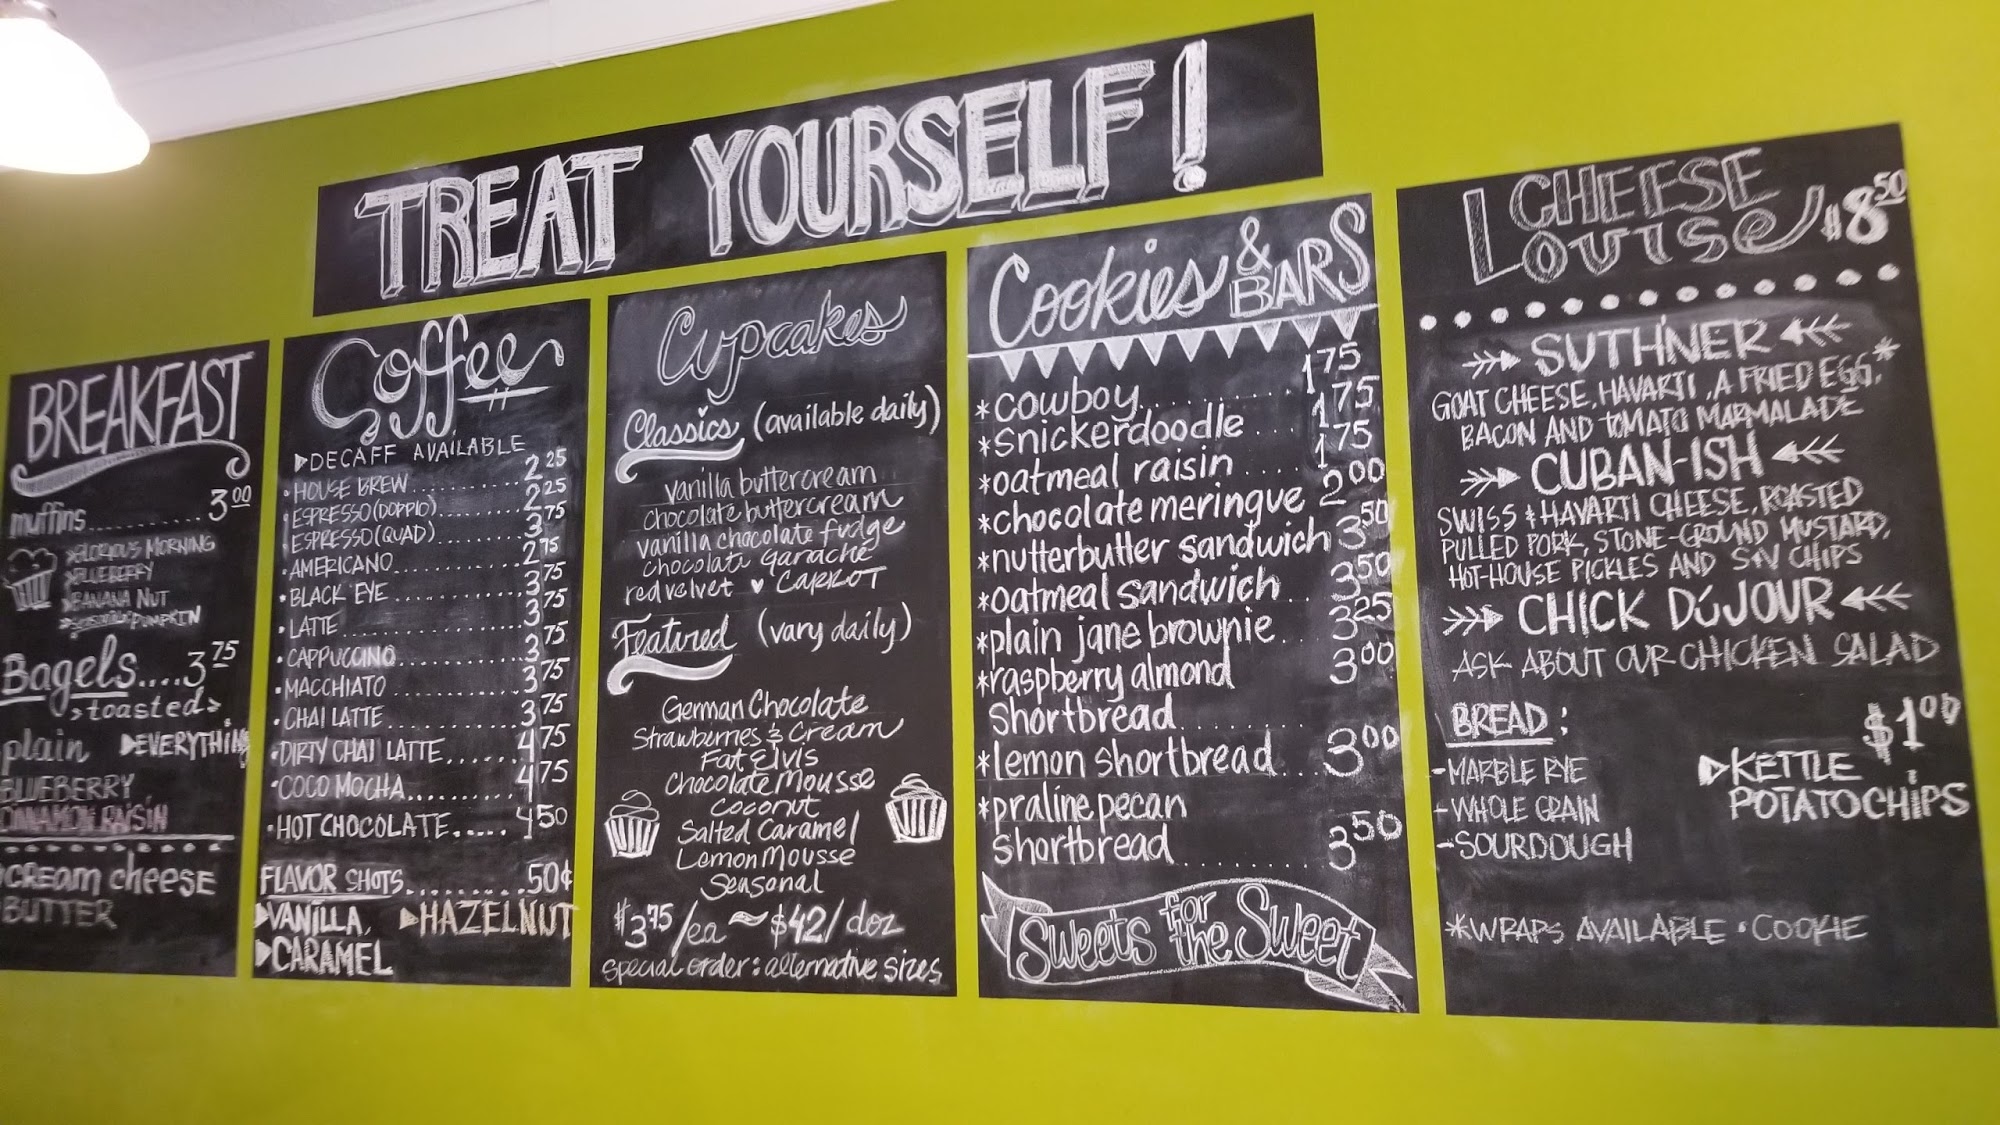 TREAT YOURSELF!
BREAKFAST
muffins.......... 3.00
GLORIOUS MORNING
BLUEBERRY
BANANA NUT
SEASONAL: PUMPKIN
Bagels....3.75
>toasted>
plain EVERYTHING
BLUEBERRY
CINNAMON RAISIN
CREAM cheese
BUTTER
Coffee
DECAFF AVAILABLE
• HOUSE BREW .......... 2.25
• ESPRESSO (DOPPIO) .......... 2.25
• ESPRESSO (QUAD) .......... 3.75
• AMERICANO .......... 2.75
• BLACK EYE .......... 3.75
• LATTE .......... 3.75
• CAPPUCCINO .......... 3.75
• MACCHIATO .......... 3.75
• CHAI LATTE .......... 3.75
• DIRTY CHAI LATTE .......... 4.75
• COCO MOCHA .......... 4.75
• HOT CHOCOLATE ..... 4.50
FLAVOR SHOTS ........ .50¢
VANILLA, HAZELNUT
CARAMEL
Cupcakes
Classics (available daily)
vanilla buttercream
chocolate buttercream
vanilla chocolate fudge
chocolate Ganache
red velvet ♥ CARROT
Featured (vary daily)
German Chocolate
Strawberries & Cream
Fat Elvis
Chocolate Mousse
Coconut
Salted Caramel
Lemon Mousse
Seasonal
$3.75/ea ~ $42/doz
special order: alternative sizes
Cookies & BARS
*cowboy .......... 1.75
*snickerdoodle .... 1.75
*oatmeal raisin ..... 1.75
*chocolate meringue 2.00
*nutterbutter sandwich 3.50
*oatmeal sandwich .. 3.50
*plain jane brownie .. 3.25
*raspberry almond 3.00
shortbread ..........
*lemon shortbread ... 3.00
*praline pecan
shortbread ........ 3.50
Sweets for the Sweet
CHEESE
LOUISE $8.50
SUTH'NER
GOAT CHEESE, HAVARTI, A FRIED EGG,*
BACON AND TOMATO MARMALADE
CUBAN-ISH
SWISS & HAVARTI CHEESE, ROASTED
PULLED PORK, STONE-GROUND MUSTARD,
HOT-HOUSE PICKLES AND S+V CHIPS
CHICK DúJOUR
ASK ABOUT OUR CHICKEN SALAD
BREAD: $1.00
-MARBLE RYE KETTLE
-WHOLE GRAIN POTATO CHIPS
-SOURDOUGH
*WRAPS AVAILABLE • COOKIE